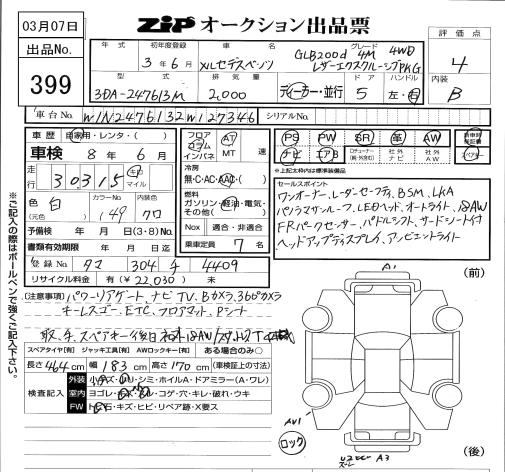 03月07日
ZiP オークション出品票
出品No.
399
年式
初年度登録
3年6月
車名
メルセデスベンツ
グレード
GLB200d 4M 4WD
レザーエクスクルーシブPKG
評価点
4
内装
B
型式
3DA-247613M
排気量
2,000
ディーラー・並行
ドア
5
ハンドル
左・右
車台No.
W1N2476132W127346
シリアルNo.
車歴 自家用・レンタ・( )
車検 8年6月
走行 30315 キロ マイル
色 (元色) 白
カラーNo. 149
内色 クロ
予備検 年 月 日(3・8)No.
書類有効期限 年 月 日迄
登録No. タマ 304 チ 4409
リサイクル料金 有(¥22,030) 未
フロア コラム インパネ
AT
MT 速
冷房
無・C・AC・AAC・( )
燃料
ガソリン・軽油・電気・
その他( )
Nox 適合・非適合
乗車定員 7名
PS PW SR 革 AW
ナビ エアB
社外ナビ
社外AW
スペアキー
※上記太枠内は標準装備品
セールスポイント
ワンオーナー、レーダーセーフティ、BSM、LKA
パノラマルーフ、LEDヘッド、オートライト、18AW
FRパークセンサー、パドルシフト、サードシート付
ヘッドアップディスプレイ、アンビエントライト
(注意事項) パワーリアゲート、ナビTV、Bカメラ、360°カメラ
キーレスゴー、ETC、フロアマット、Pシート
スペアタイヤ[有] ジャッキ工具[有] AWロックキー[有] ある場合のみ〇
長さ464cm 幅183cm 高さ170cm (車検証上の寸法)
検査記入
外装 小キズ・凹・シミ・ホイルA・ドアミラー(A・ワレ)
室内 ヨゴレ・スレ・コゲ・穴・キレ・破れ・ウキ
FW トビ石・キズ・ヒビ・リペア跡・X要ス
※ご記入の際はボールペンで強くご記入下さい。
A1
(前)
AW1
ロック
A3
(後)